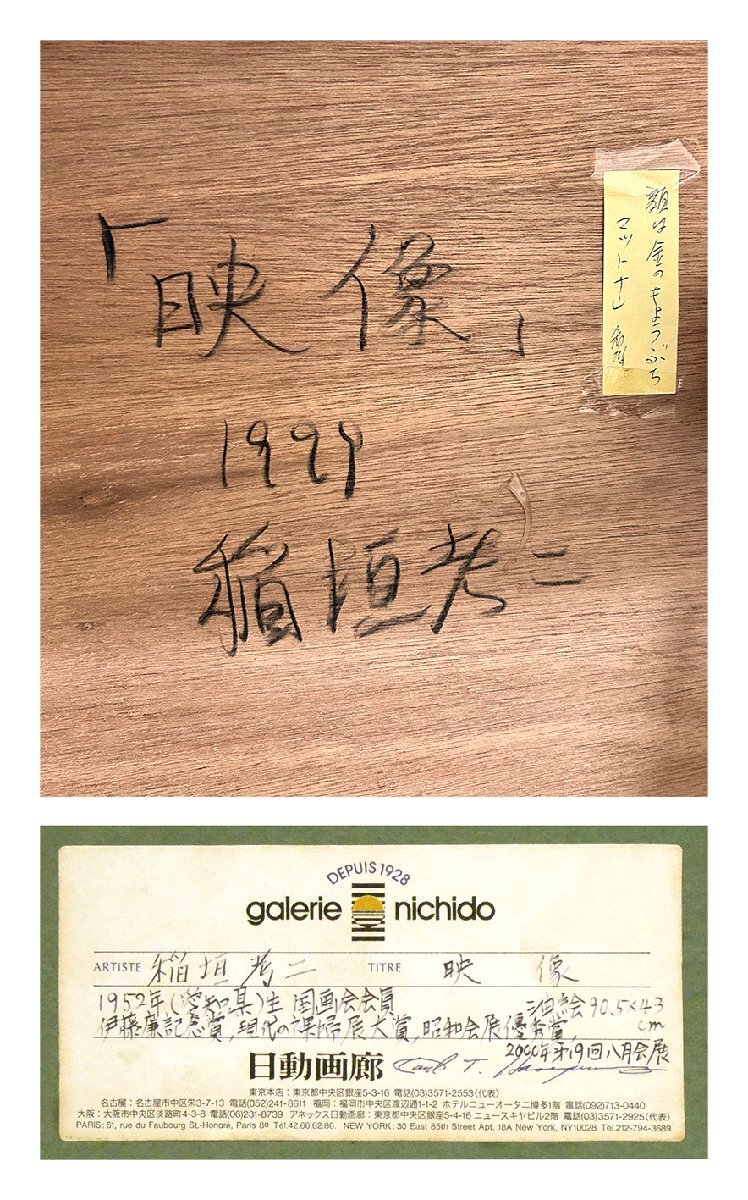 「映像」
1999
稲垣考二
額は金のちょうぶち
マットナし
DEPUIS 1928
galerie nichido
ARTISTE 稲垣考二 TITRE 映像
1952年(愛知県)生 国画会会員 油絵 90.5×43 cm
伊藤廉記念賞, 現代の裸婦展大賞, 昭和会展優秀賞,
2000年第19回八月会展
日動画廊
東京本店:東京都中央区銀座5-3-16 電話(03)3571-2553(代表)
名古屋:名古屋市中区栄3-7-13 電話(052)241-8611 福岡:福岡市中央区渡辺通1-1-2 ホテルニューオータニ博多1階 電話(092)713-0440
大阪:大阪市中央区淡路町4-3-8 電話(06)231-0739 アネックス日動画廊:東京都中央区銀座5-4-16 ニュースキヤビル2階 電話(03)3571-2925(代表)
PARIS: 61, rue du Faubourg St.-Honoré, Paris 8e Tél.42.66.62.86. NEW YORK: 30 East 85th Street Apt. 18A New York, NY10028 Tel.212-794-3689